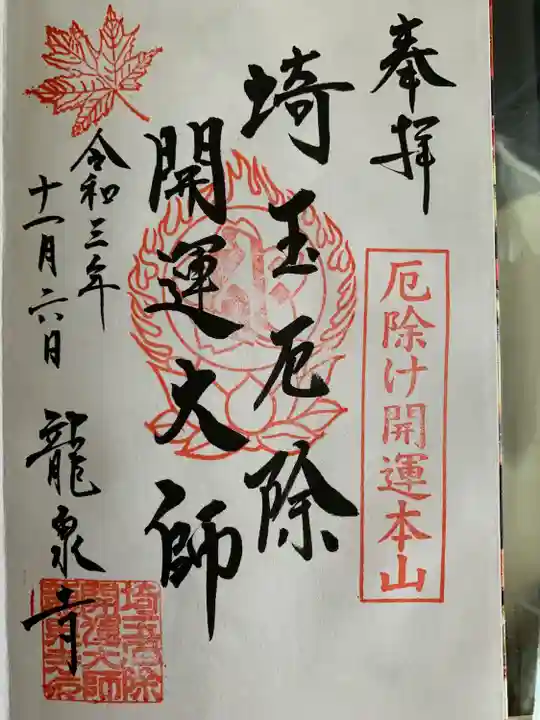 奉拝
厄除け開運本山
埼玉厄除
開運大師
令和三年
十一月六日
龍泉寺
埼玉厄除
開運大師
龍泉寺